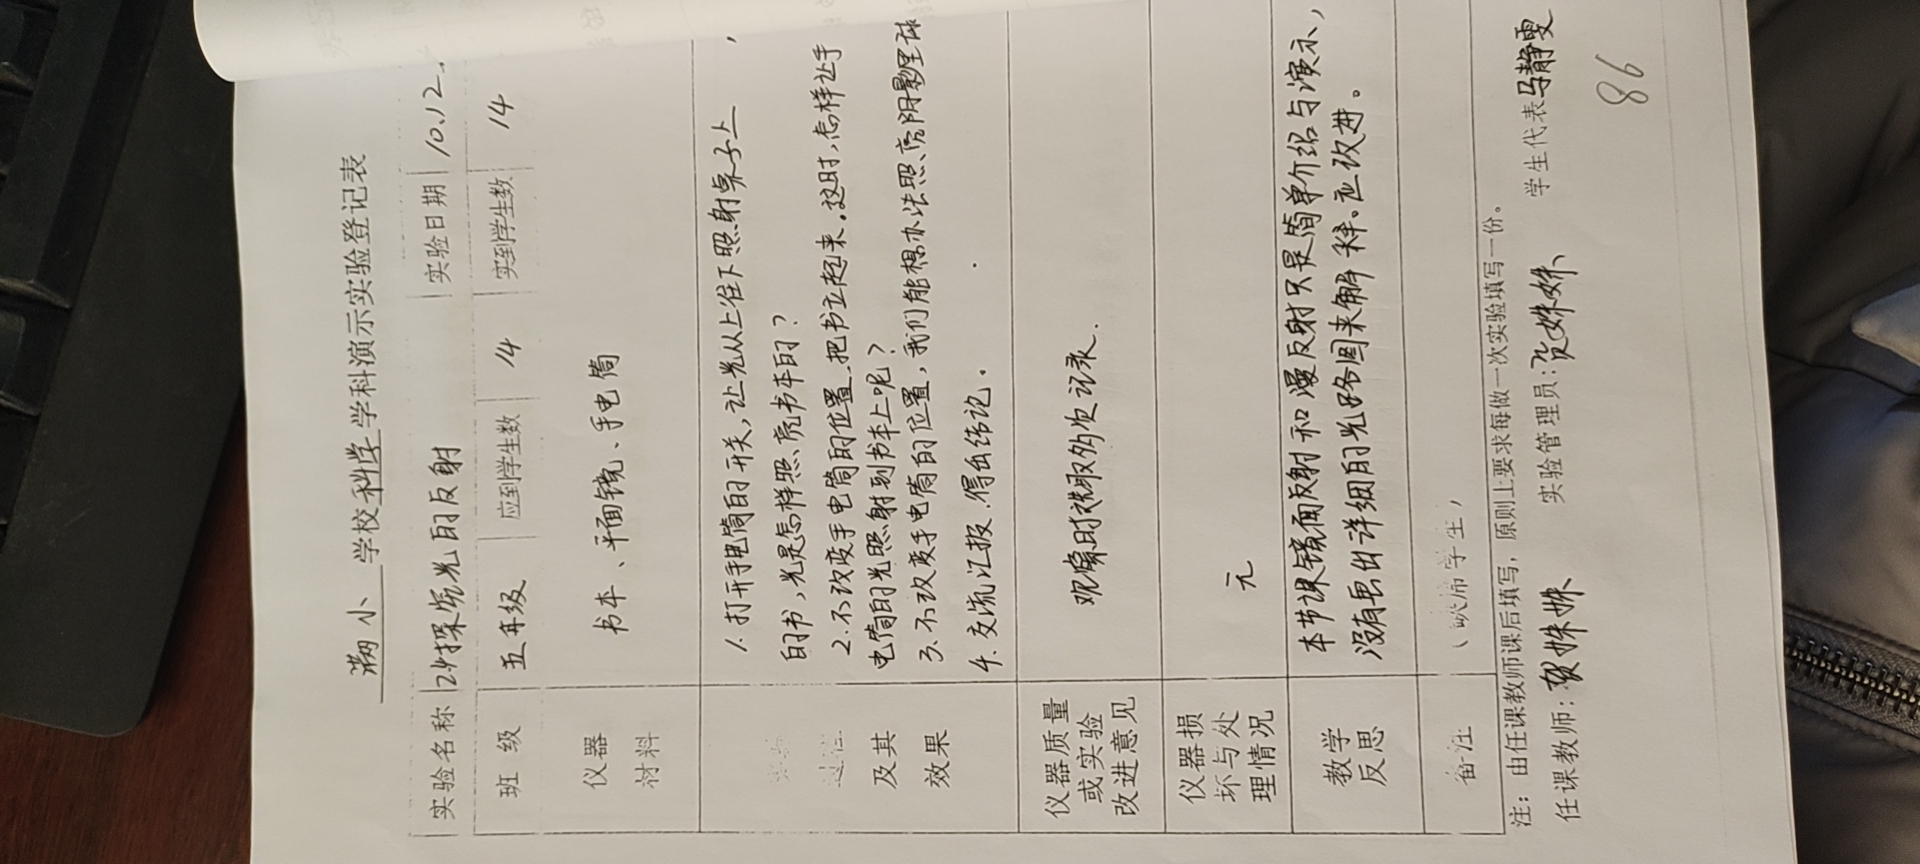 满小 学校科学学科演示实验登记表
实验名称 2.4探究光的反射 实验日期 10.12
班 级 五年级 应到学生数 14 实到学生数 14
仪器
材料
书本、平面镜、手电筒
及其
效果
1.打开手电筒的开关,让光从上往下照射桌子上
的书,光是怎样照亮书本的?
2.不改变手电筒的位置.把书立起来.这时,怎样让手
电筒的光照射到书本上呢?
3.不改变手电筒的位置,我们能想办法照亮阴影里
4.交流汇报.得出结论。
仪器质量
或实验
改进意见
观像时选取 次记录.
仪器损
坏与处
理情况
元
教学
反思
本节课镜面反射和漫反射只是简单介绍与演示,
没有画出详细的光路图来解释.应改进。
备注
(缺席学生,
注:由任课教师课后填写,原则上要求每做一次实验填写一份。
任课教师: 姝姝 实验管理员: 姝姝 学生代表 马静雯
86